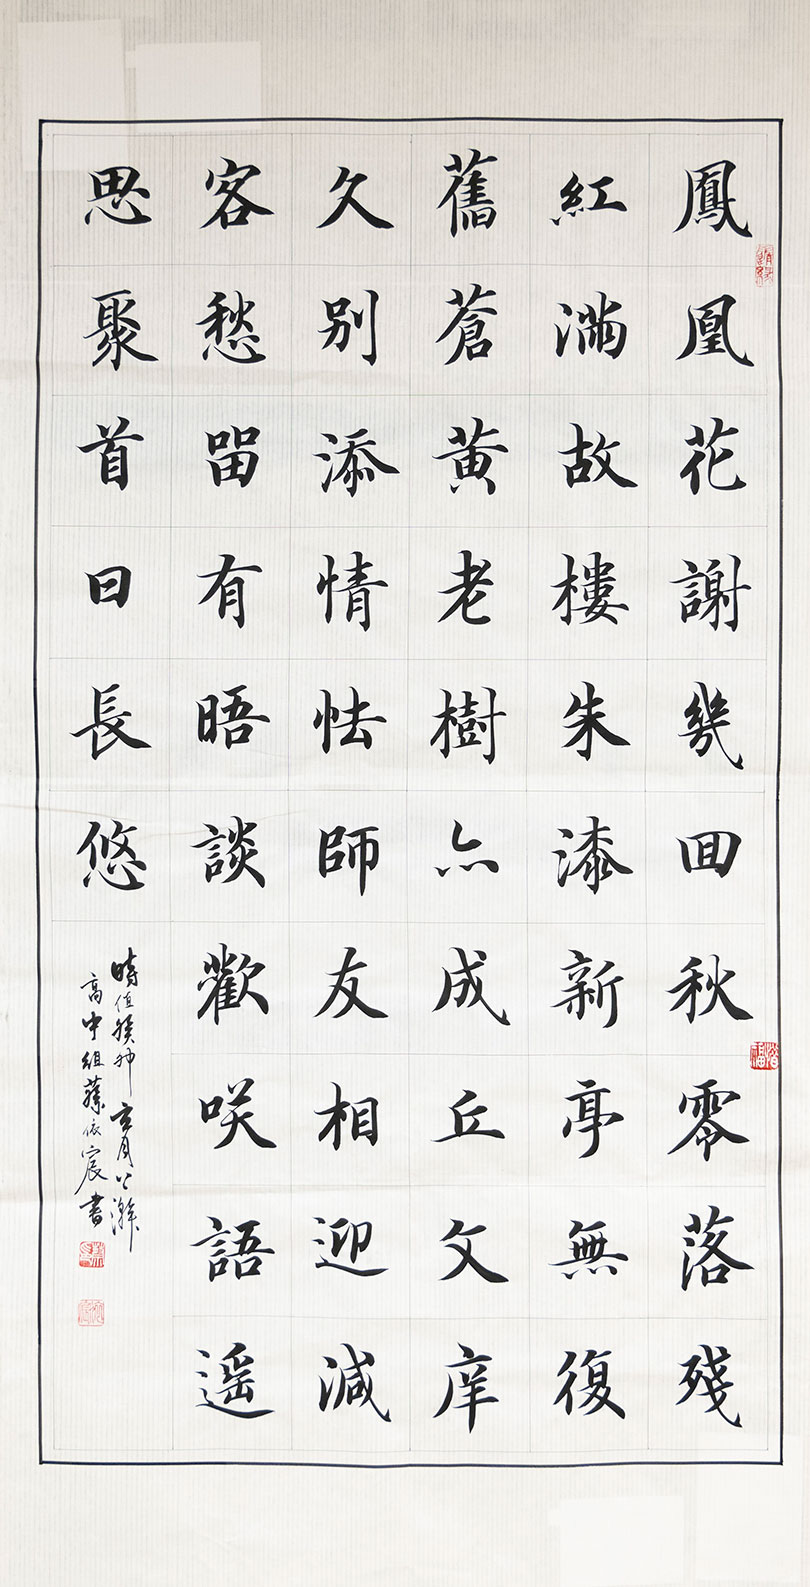 鳳凰花謝幾囬秋零落殘
紅滿故樓朱漆新亭無復
舊蒼黃老樹亦成丘文庠
久別添情怯師友相迎減
客愁留有晤談歡咲語遥
思聚首日長悠
時值癸卯玄月
高中組依宸書